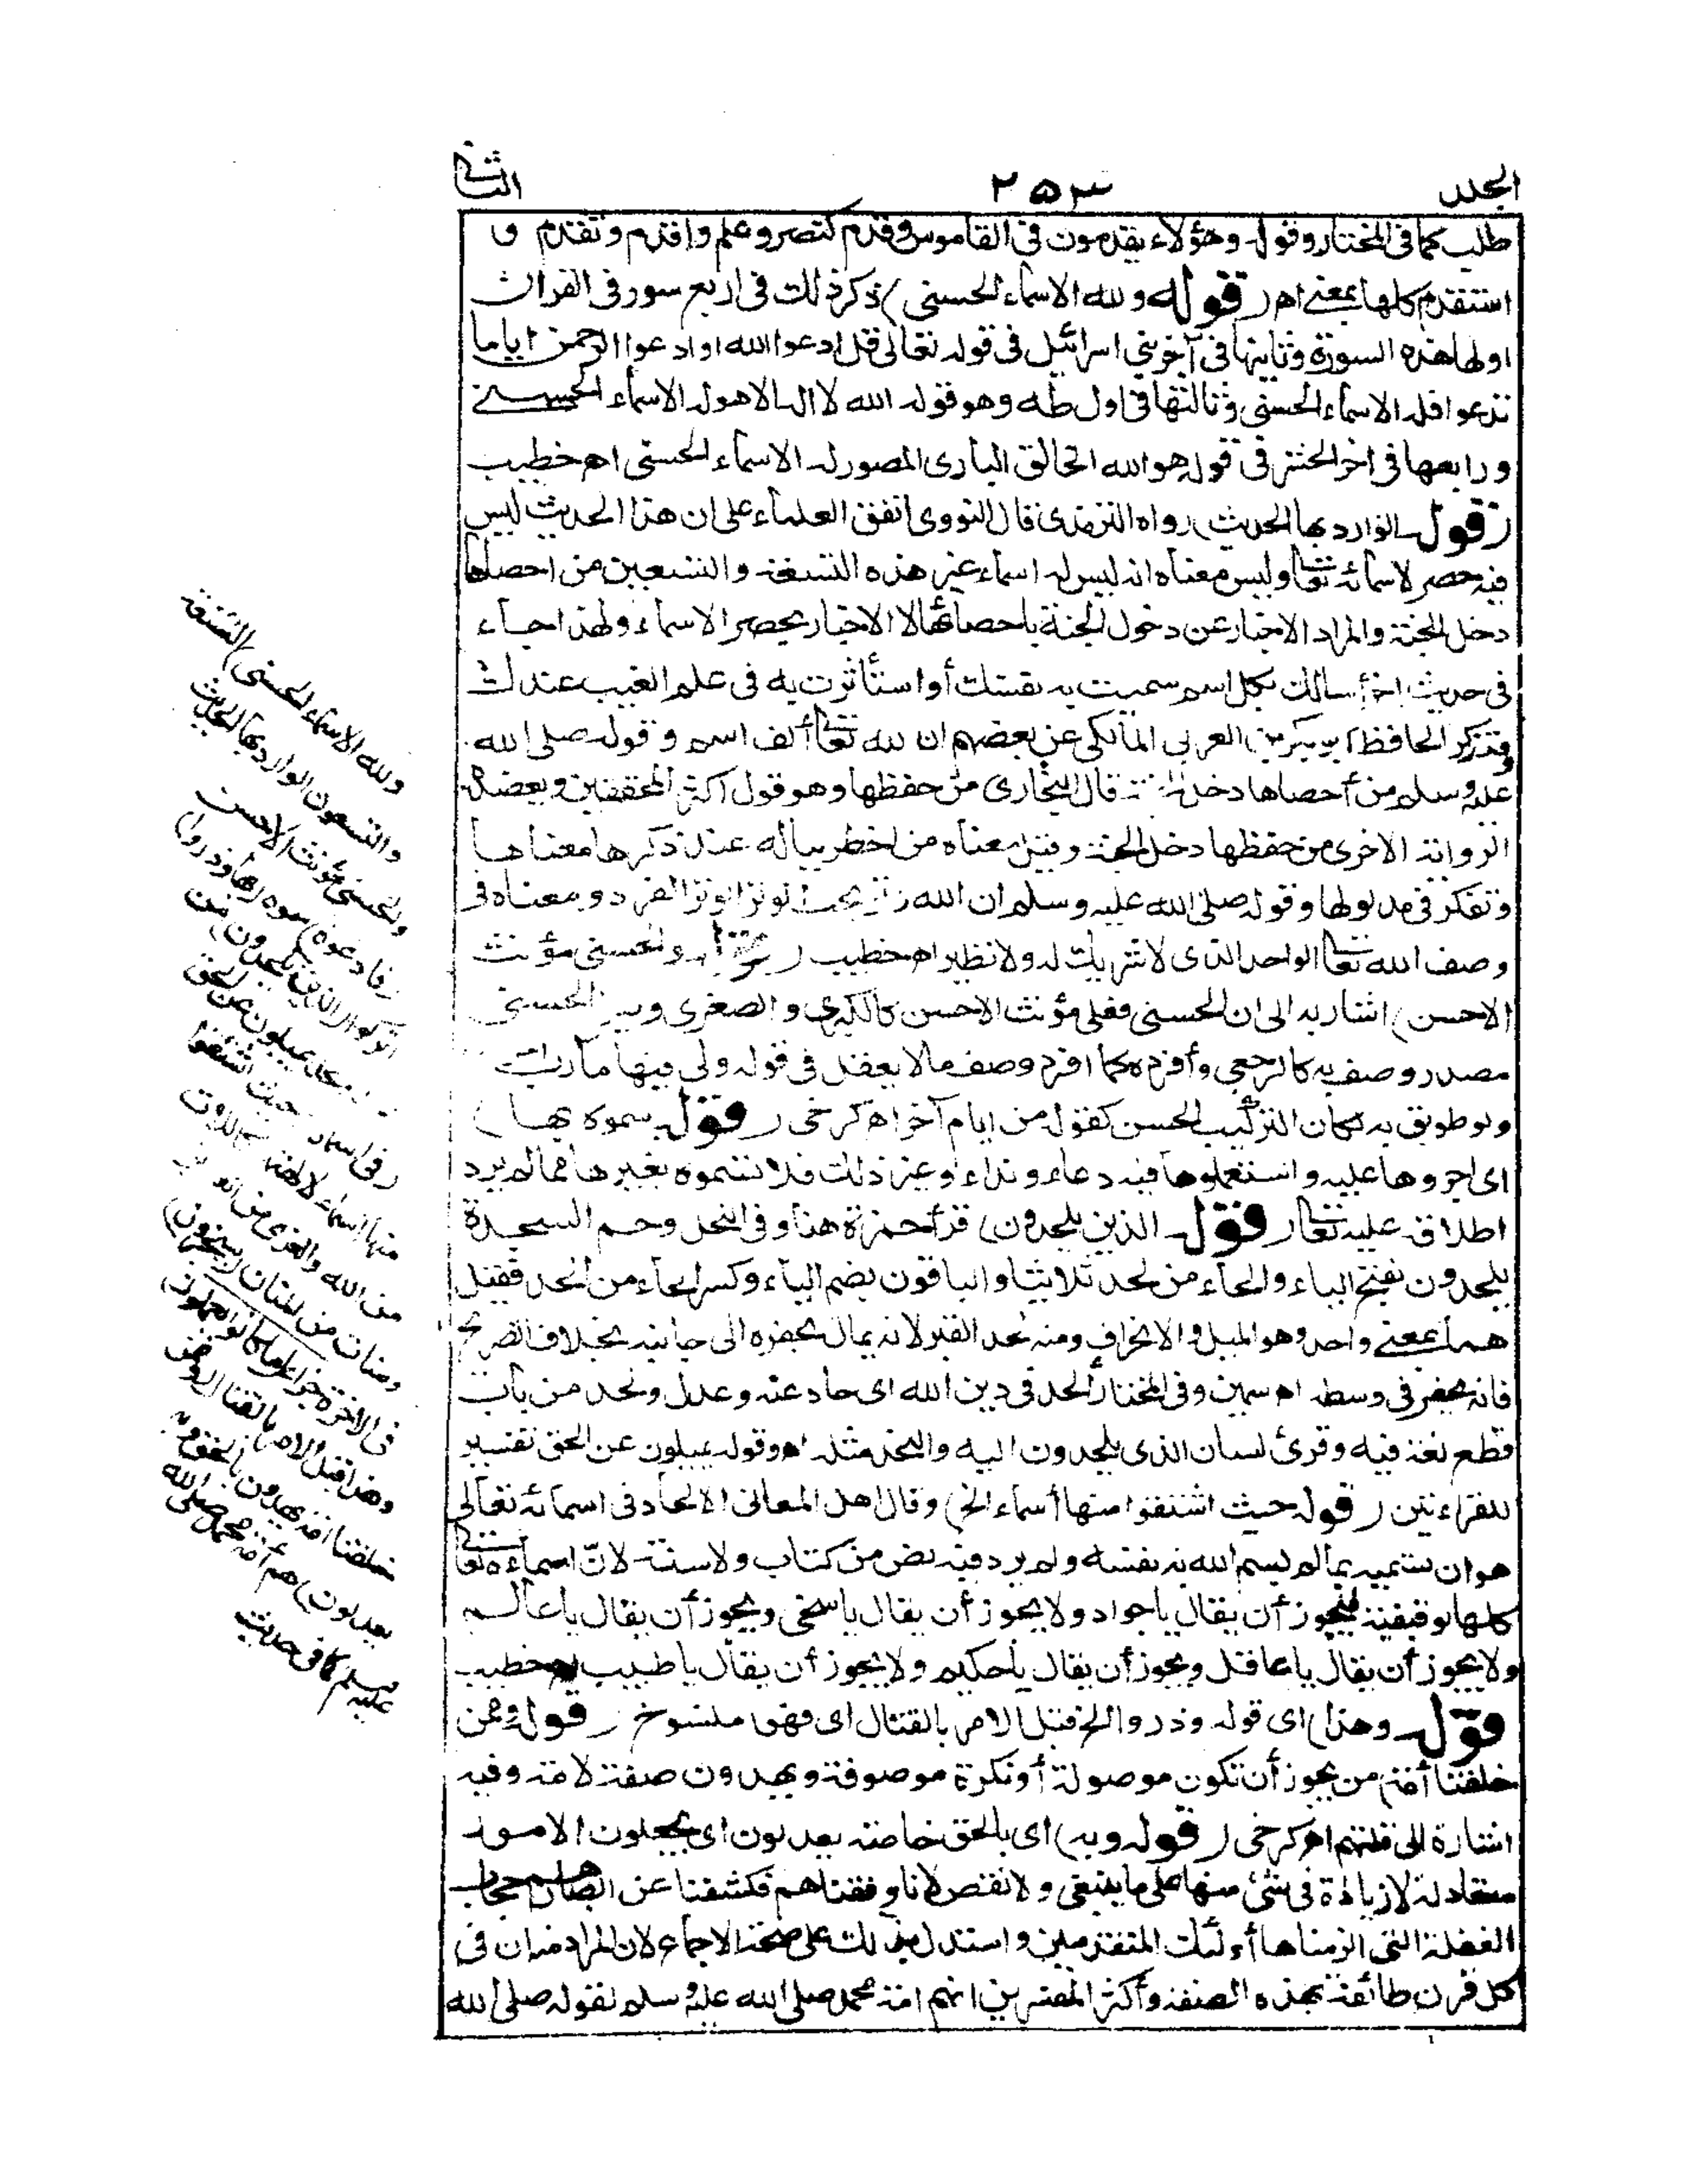 الجلد
٢٥٣
الثانى
طلب كما فى المختار وقوله وهؤلاء يقدمون فى القاموس وقدم كنصر وعلم واقدم وتقدم و
استقدم كلها بمعنى اه (قوله ولله الاسماء الحسنى) ذكر ذلك فى اربع سور فى القرآن
اولها هذه السورة وثانيها فى آخر بنى اسرائيل فى قوله تعالى قل ادعوا الله او ادعوا الرحمن اياما
تدعوا فله الاسماء الحسنى وثالثها فى اول طه وهو قوله الله لا اله الا هو له الاسماء الحسنى
ورابعها فى اخر الحشر فى قوله هو الله الخالق البارى المصور له الاسماء الحسنى اه خطيب
(قوله الوارد بها الحديث) رواه الترمذى قال النووى اتفق العلماء على ان هذا الحديث ليس
فيه حصر لاسمائه تعالى وليس معناه انه ليس له اسماء غير هذه التسعة والتسعين من احصاها
دخل الجنة والمراد الاخبار عن دخول الجنة باحصائها لا الاخبار بحصر الاسماء ولهذا جاء
فى حديث اخر أسالك بكل اسم سميت به نفسك أو استأثرت به فى علم الغيب عندك
وقد ذكر الحافظ ابو بكر بن العربى المالكى عن بعضهم ان لله تعالى ألف اسم وقوله صلى الله
عليه وسلم من أحصاها دخل الجنة قال البخارى من حفظها وهو قول اكثر المحققين ويعضده
الرواية الاخرى من حفظها دخل الجنة وقيل معناه من اخطر بباله عند ذكرها معناها
وتفكر فى مدلولها وقوله صلى الله عليه وسلم ان الله وتر يحب الوتر الوتر الفرد ومعناه فى
وصف الله تعالى الواحد الذى لا شريك له ولا نظير اه خطيب (قوله والحسنى مؤنث
الاحسن) اشار به الى ان الحسنى فعلى مؤنث الاحسن كالكبرى والصغرى وقيل الحسنى
مصدر وصف به كالرجعى وأفرده كما افرد وصف ما لا يعقل فى قوله ولى فيها مآرب
ولو طوبق به لكان التركيب الحسن كقوله من ايام آخر اه كرخى (قوله سموه بها)
اى اجروها عليه واستعملوها فيه دعاء ونداء وغير ذلك فلا تسموه بغيرها مما لم يرد
اطلاقه عليه تعالى (قوله الذين يلحدون) قرأ حمزة هنا وفى النحل وحم السجدة
يلحدون بفتح الياء والحاء من لحد ثلاثيا والباقون بضم الياء وكسر الحاء من الحد فقيل
هما بمعنى واحد وهو الميل والانحراف ومنه لحد القبر لانه يمال بحفره الى جانبه بخلاف الضريح
فانه يحفر فى وسطه اه سمين وفى المختار ألحد فى دين الله اى حاد عنه وعدل ولحد من باب
قطع لغة فيه وقرئ لسان الذى يلحدون اليه والتحد مثله اه وقوله يميلون عن الحق تفسير
للقراءتين (قوله حيث اشتقوا منها أسماء الخ) وقال اهل المعانى الالحاد فى اسمائه تعالى
هو ان تسميه بما لم يسم الله به نفسه ولم يرد فيه نص من كتاب ولا سنة لانّ اسماءه تعالى
كلها توقيفية فيجوز أن يقال يا جواد ولا يجوز أن يقال يا سخى ويجوز أن يقال يا عالم
ولا يجوز أن يقال يا عاقل ويجوز أن يقال يا حكيم ولا يجوز أن يقال يا طبيب اه خطيب
(قوله وهذا) اى قوله وذروا الخ قبل الامر بالقتال اى فهو منسوخ (قوله وممن
خلقنا أمة) من يجوز أن تكون موصولة أو نكرة موصوفة ويهدون صفة لامة وفيه
اشارة الى قلتهم اه كرخى (قوله وبه) اى بالحق خاصة يعدلون اى يجعلون الامور
متعادلة لا زيادة فى شئ منها على ما ينبغى ولا نقص لانا وفقناهم فكشفنا عن ابصارهم حجاب
الغفلة التى الزمناها أولئك المتقدمين واستدل بذلك على صحة الاجماع لان المراد منه ان فى
كل قرن طائفة بهذه الصفة وأكثر المفسرين انهم امة محمد صلى الله عليه وسلم لقوله صلى الله
ولله الاسماء الحسنى) التسعة
والتسعون الوارد بها الحديث
والحسنى مؤنث الاحسن
(فادعوه) سموه (بها وذروا)
اتركوا (الذين يلحدون) من
يميلون عن الحق
(فى اسمائه) حيث اشتقوا
منها اسماء لالهتهم كاللات
من الله والعزى من العزيز
ومنات من المنان (سيجزون)
فى الاخرة جزاء (ما كانوا يعملون)
وهذا قبل الامر بالقتال (وممن
خلقنا امة يهدون بالحق وبه
يعدلون) هم أمة محمد صلى الله
عليه وسلم كما فى حديث